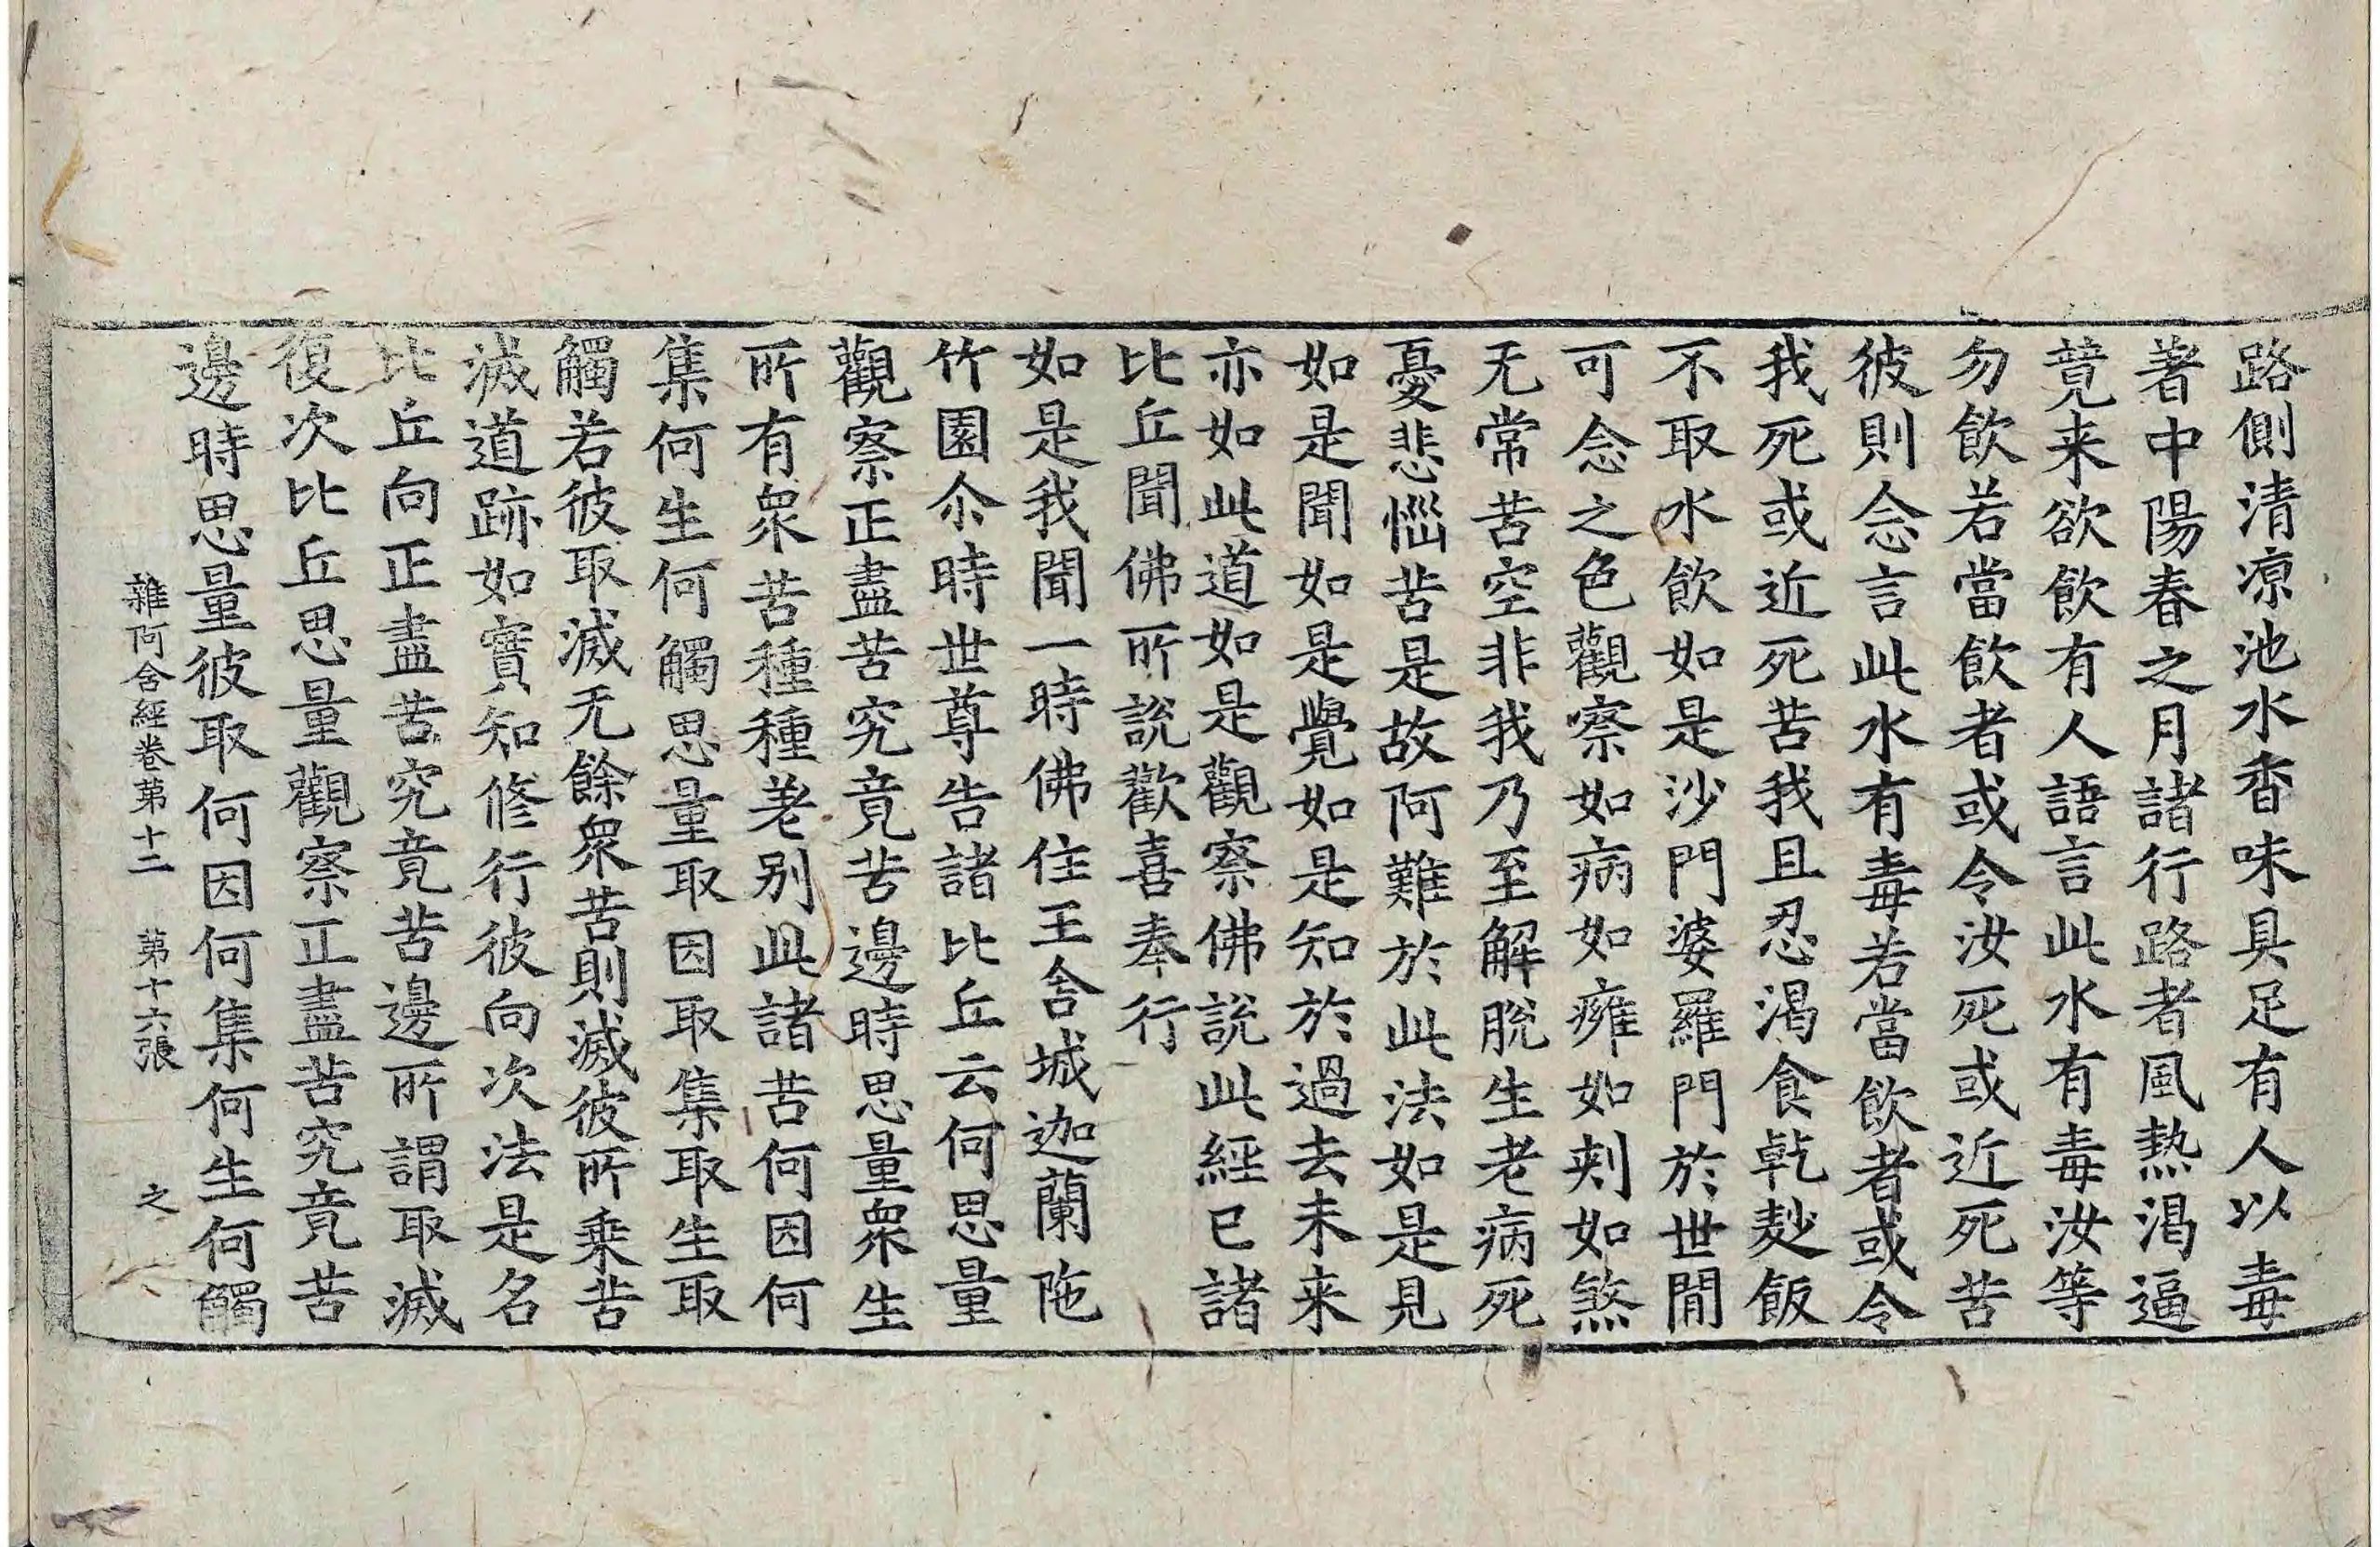 路側清凉池水香味具足有人以毒
著中陽春之月諸行路者風熱渴逼
竟来欲飮有人語言此水有毒汝等
勿飮若當飮者或令汝死或近死苦
彼則念言此水有毒若當飮者或令
我死或近死苦我且忍渴食乹麨飯
不取水飮如是沙門婆羅門於世間
可念之色觀察如病如癕如刾如煞
无常苦空非我乃至解脫生老病死
憂悲惱苦是故阿難於此法如是見
如是聞如是覺如是知於過去未来
亦如此道如是觀察佛說此經已諸
比丘聞佛所說歡喜奉行
如是我聞一時佛住王舍城迦蘭陁
竹園尒時世尊告諸比丘云何思量
觀察正盡苦究竟苦邊時思量衆生
所有衆苦種種差别此諸苦何因何
集何生何觸思量取因取集取生取
觸若彼取滅无餘衆苦則滅彼所乗苦
滅道跡如實知修行彼向次法是名
比丘向正盡苦究竟苦邊所謂取滅
復次比丘思量觀察正盡苦究竟苦
邊時思量彼取何因何集何生何觸
雜阿含經卷第十二 第十六張 之